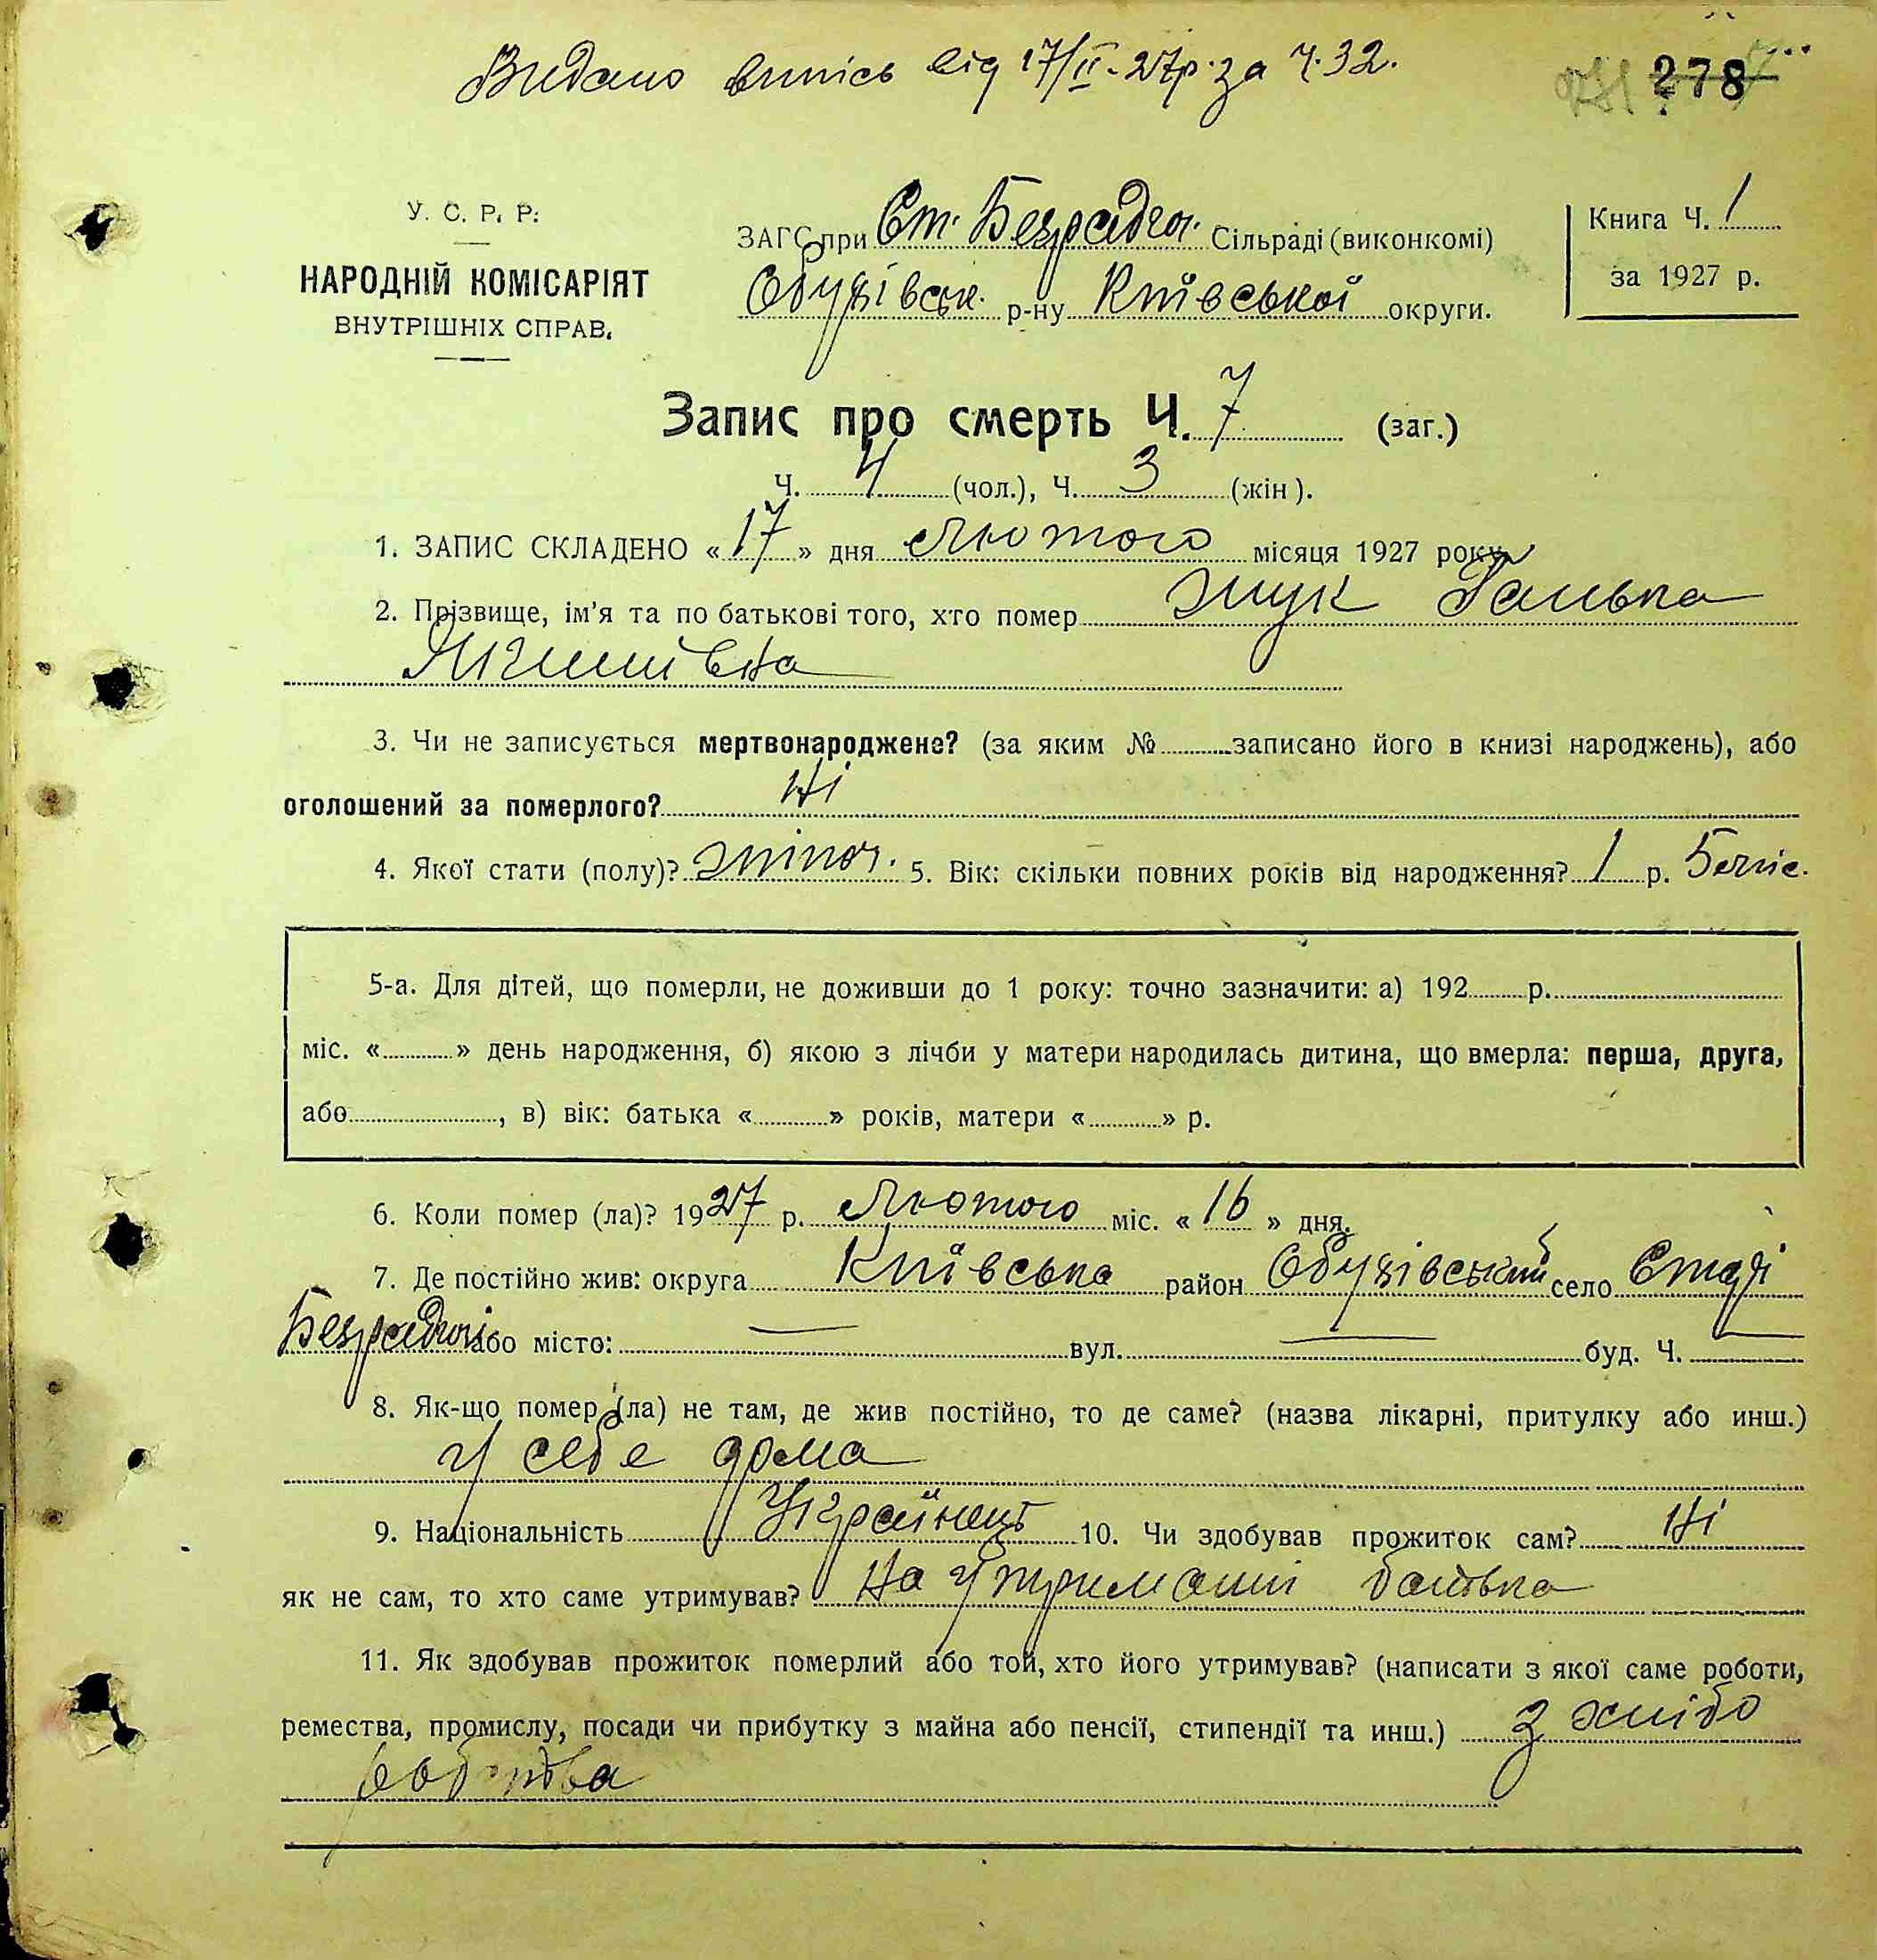 Видано випісь від 17/II-27р. за Ч. 32.
278
У. С. Р. Р.
НАРОДНІЙ КОМІСАРІЯТ
ВНУТРІШНІХ СПРАВ.
ЗАГС при Ст. Безрадч. Сільраді (виконкомі)
Обухівськ. р-ну Київської округи.
Книга Ч. 1
за 1927 р.
Запис про смерть Ч. 7 (заг.)
Ч. 4 (чол.), Ч. 3 (жін).
1. ЗАПИС СКЛАДЕНО «17» дня Лютого місяця 1927 року
2. Прізвище, ім'я та по батькові того, хто помер Жук Галька
3. Чи не записується мертвонароджене? (за яким № записано його в книзі народжень), або
оголошений за померлого? Ні
4. Якої стати (полу)? жіноч. 5. Вік: скільки повних років від народження? 1 р. 5 міс.
5-а. Для дітей, що померли, не доживши до 1 року: точно зазначити: а) 192 р.
міс. « » день народження, б) якою з лічби у матери народилась дитина, що вмерла: перша, друга,
або , в) вік: батька « » років, матери « » р.
6. Коли помер (ла)? 1927 р. Лютого міс. «16» дня.
7. Де постійно жив: округа Київська район Обухівський село Старі
Безрадичі або місто: — вул. — буд. Ч. —
8. Як-що помер (ла) не там, де жив постійно, то де саме? (назва лікарні, притулку або инш.)
у себе дома
9. Національність Українець 10. Чи здобував прожиток сам? Ні
як не сам, то хто саме утримував? На утриманні батька
11. Як здобував прожиток померлий або той, хто його утримував? (написати з якої саме роботи,
ремества, промислу, посади чи прибутку з майна або пенсії, стипендії та инш.) З хлібо
робства